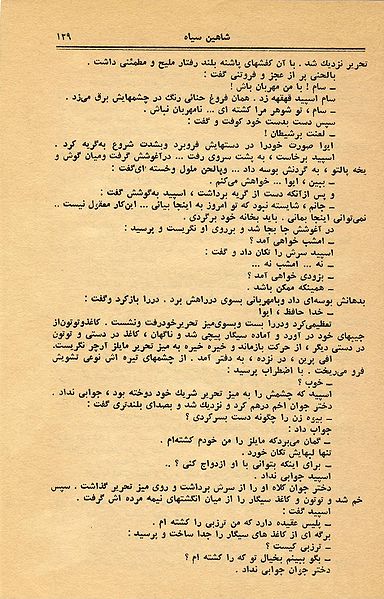 شاهین سیاه
۱۲۹
تحریر نزدیك شد . با آن کفشهای پاشنه بلند رفتار ملیح و مطمئنی داشت .
بالحنی پر از عجز و فروتنی گفت :
ــ سام ! با من مهربان باش !
سام اسپید قهقهه زد . همان فروغ حنائی رنگ در چشمهایش برق میزد .
ــ سام ، تو شوهر مرا کشته ای ... نامهربان نباش .
سپس دست بدست خود کوفت و گفت :
ــ لعنت برشیطان !
ایوا صورت خودرا در دستهایش فروبرد وبشدت شروع بهگریه کرد .
اسپید برخاست ، به پشت سروی رفت ... درآغوشش گرفت ومیان گوش و
یخه پالتو ، به گردنش بوسه داد ... وبالحن ملول وخسته ایگفت :
ــ ببین ، ایوا ... خواهش میکنم .
و پس ازآنکه دست از گریه برداشت ، اسپید بهگوشش گفت :
ــ جانم ، شایسته نبود که تو امروز به اینجا بیائی ... اینکار معقول نیست ..
نمیتوانی اینجا بمانی . باید بخانه خود برگردی .
در آغوشش جا بجا شد و برروی او نگریست و پرسید :
ــ امشب خواهی آمد ؟
اسپید سرش را تکان داد و گفت :
ــ نه ... امشب نه ...
ــ بزودی خواهی آمد ؟
ــ همینکه ممکن باشد .
بدهانش بوسهای داد وبامهربانی بسوی درراهش برد . دررا بازکرد وگفت :
ــ خدا حافظ ، ایوا
تعظیمیکرد ودررا بست وبسویمیز تحریرخودرفت ونشست . کاغذوتوتوناز
جیبهای خود در آورد و آماده سیگار پیچی شد و ناگهان ، کاغذ در دستی و توتون
در دستی دیگر ، از حرکت بازماند و خیره خیره به میز تحریر مایلز آرچر نگریست.
افی پرین ، در نزده ، به دفتر آمد . از چشمهای تیره اش نوعی تشویش
فرو میریخت . با اضطراب پرسید :
ــ خوب ؟
اسپید که چشمش را به میز تحریر شریك خود دوخته بود ، جوابی نداد .
دختر جوان اخم درهم کرد و نزدیك شد و بصدای بلندتری گفت :
ــ بیوه زن را چگونه دست بسرکردی ؟
جواب داد :
ــ گمان میبردکه مایلز را من خودم کشتهام .
تنها لبهایش تکان خورد .
ــ برای اینکه بتوانی با او ازدواج کنی ؟ ..
اسپید جوابی نداد .
دختر جوان کلاه او را از سرش برداشت و روی میز تحریر گذاشت . سپس
خم شد و توتون و کاغذ سیگار را از میان انگشتهای نیمه مرده اش گرفت .
اسپید گفت :
ــ پلیس عقیده دارد که من ترزبی را کشته ام .
برگه ای از کاغذ های سیگار را جدا ساخت و پرسید :
ــ ترزبی کیست ؟
ــ بگو ببینم بخیال تو که را کشته ام ؟
دختر جوان جوابی نداد .